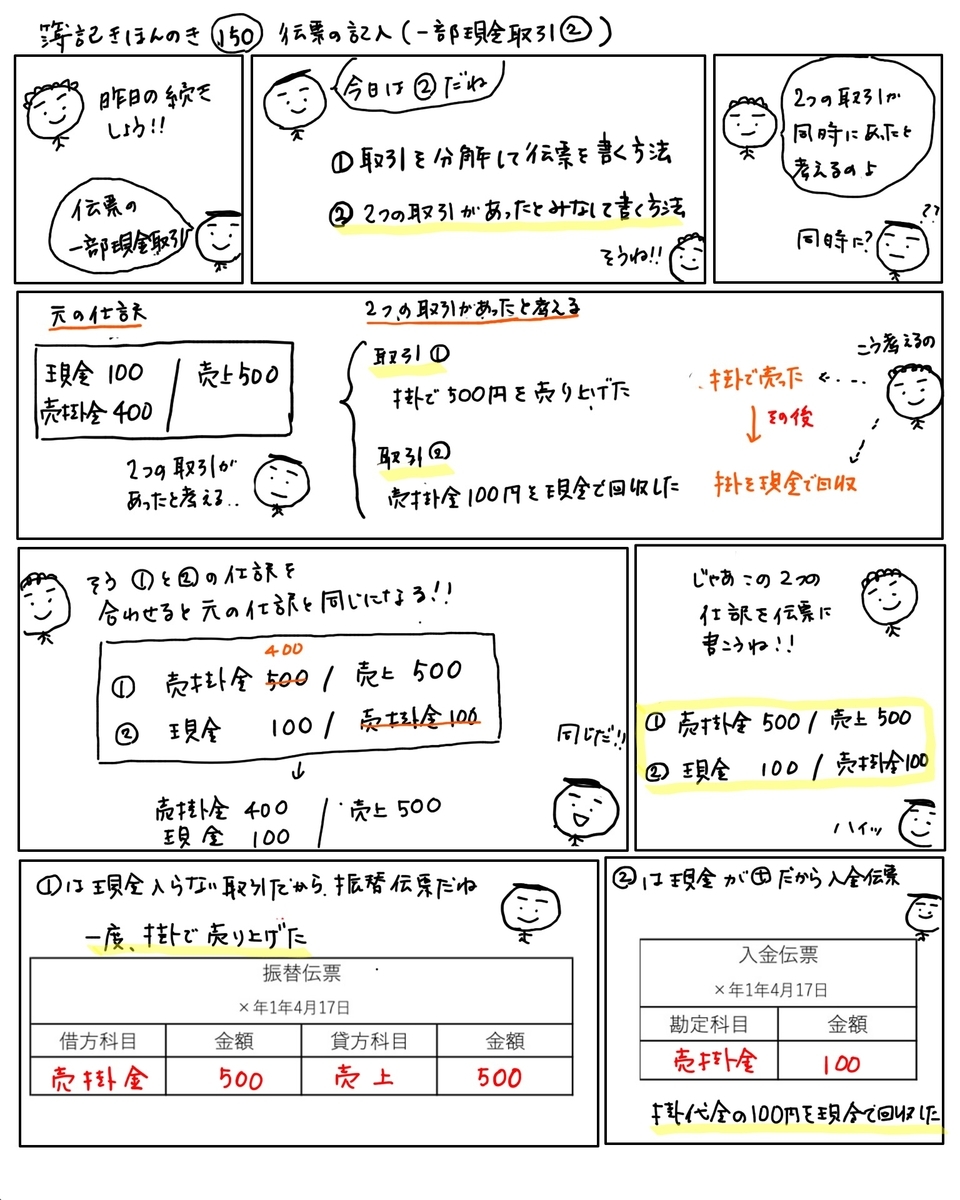 簿記きほんのき 150 伝票の記入(一部現金取引②)
昨日の続き
しよう!!
伝票の
一部現金取引
今日は②だね
① 取引を分解して伝票を書く方法
② 2つの取引があったとみなして書く方法
そうね!!
2つの取引が
同時にあったと
考えるのよ
??
同時に?
元の仕訳
現金 100 / 売上500
売掛金 400
2つの取引が
あったと考える..
2つの取引があったと考える
取引①
掛で500円を売り上げた
取引②
売掛金100円を現金で回収した
こう考えるの
掛で売った
その後
掛を現金で回収
そう①と②の仕訳を
合わせると元の仕訳と同じになる!!
400
① 売掛金 500 / 売上 500
② 現金 100 / 売掛金100
↓
売掛金 400 / 売上 500
現金 100
同じだ!!
じゃあこの2つの
仕訳を伝票に
書こうね!!
① 売掛金 500 / 売上 500
② 現金 100 / 売掛金100
ハイッ
①は現金入らない取引だから、振替伝票だね
一度、掛で売り上げた
振替伝票
×年1年4月17日
借方科目 金額 貸方科目 金額
売掛金 500 売上 500
②は現金が⊕だから入金伝票
入金伝票
×年1年4月17日
勘定科目 金額
売掛金 100
掛代金の100円を現金で回収した